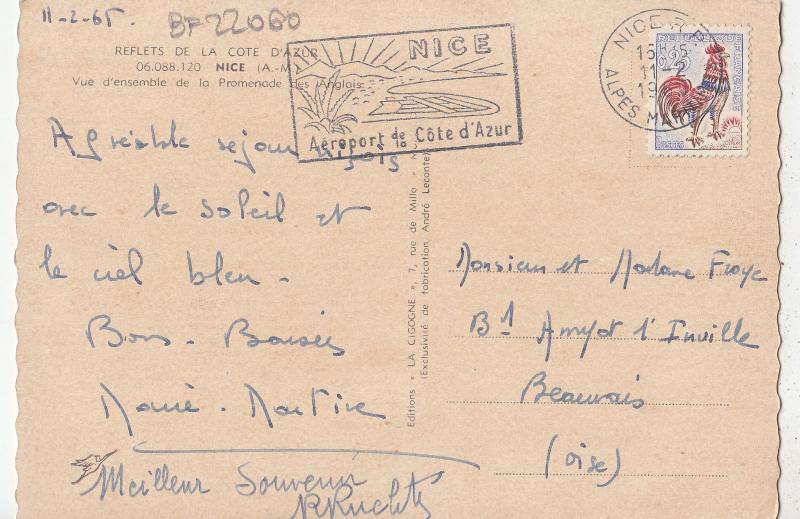 11-2-65.
BF22060
REFLETS DE LA COTE D'AZUR
06.088.120 NICE (A.-M.)
Vue d'ensemble de la Promenade des Anglais
NICE
Aéroport de la Côte d'Azur
NICE
15H15
11-2
19
ALPES MAR
REPUBLIQUE FRANÇAISE
0,25
POSTES
Agréable sejour niçois
avec le soleil et
le ciel bleu -
Bons - Baisers
Marie - Martine
Meilleur Souvenir
Editions « LA CIGOGNE », 7, rue de Millo -
(Exclusivité de fabrication André Leconte)
Monsieur et Madame
B1 Amyot d'Inville
Beauvais
(Oise)